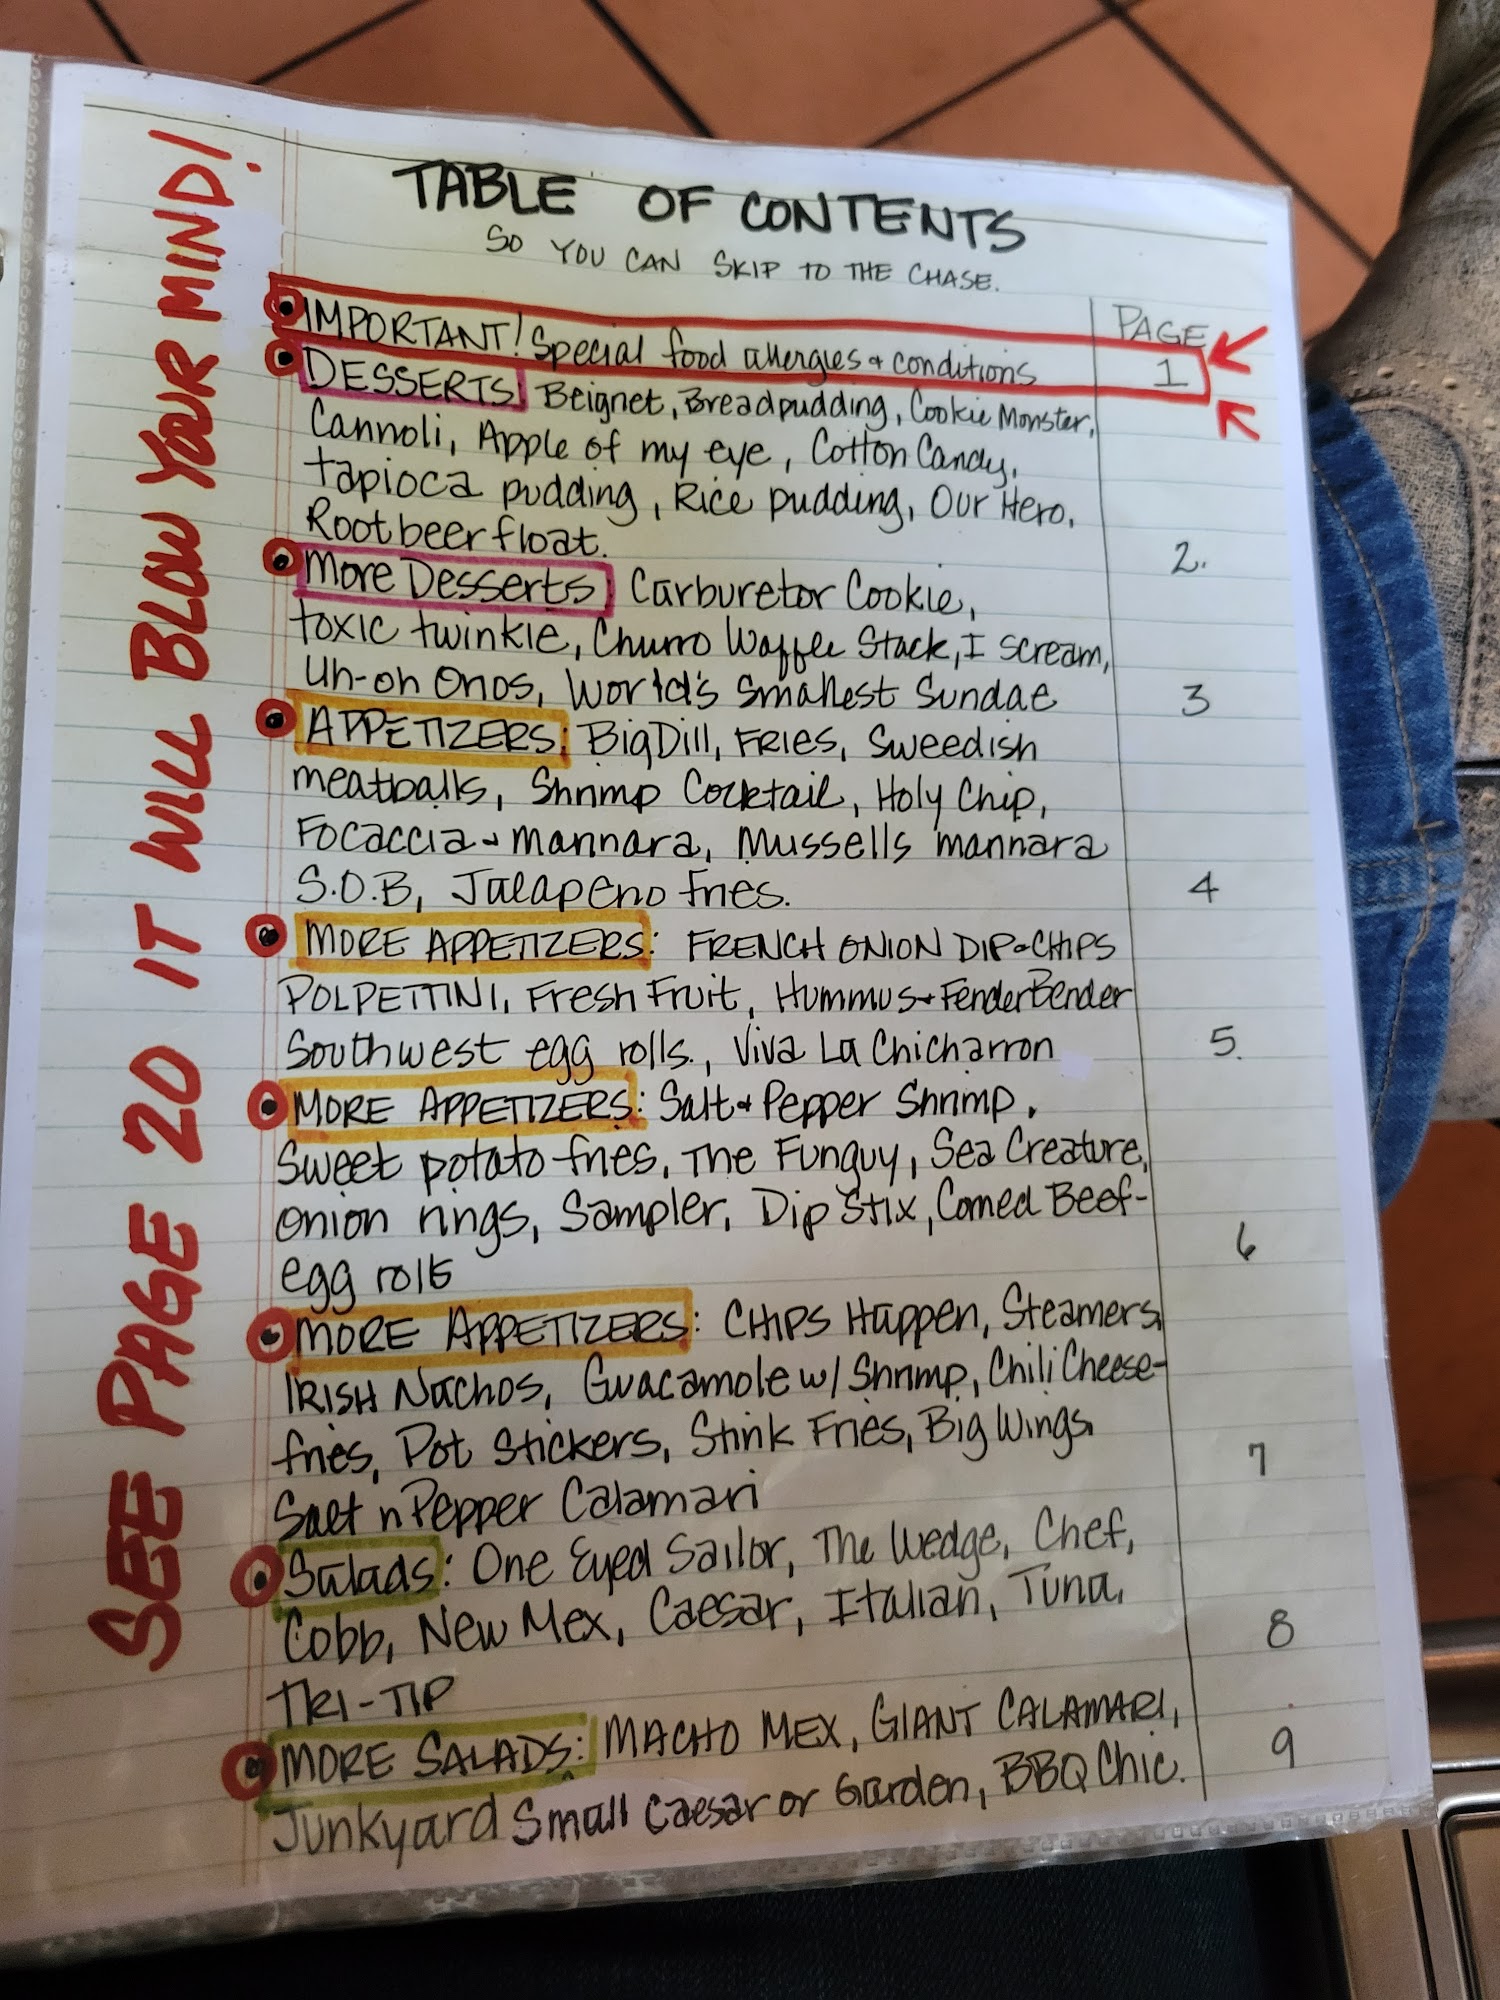 SEE PAGE 20 IT WILL BLOW YOUR MIND!
TABLE OF CONTENTS
SO YOU CAN SKIP TO THE CHASE.
PAGE
IMPORTANT! Special food allergies & conditions 1
DESSERTS: Beignet, Breadpudding, Cookie Monster,
Cannoli, Apple of my eye, Cotton Candy,
tapioca pudding, Rice pudding, Our Hero,
Rootbeer float. 2.
More Desserts: Carburetor Cookie,
toxic twinkie, Churro Waffle Stack, I scream,
Uh-oh Onos, World's Smallest Sundae 3
APPETIZERS: Big Dill, FRIES, Sweedish
meatballs, Shrimp Cocktail, Holy Chip,
Focaccia & mannara, Mussells mannara
S.O.B, Jalapeno fries. 4
MORE APPETIZERS: FRENCH ONION DIP & CHIPS
POLPETTINI, Fresh Fruit, Hummus & FenderBender
Southwest egg rolls., Viva La Chicharron 5.
MORE APPETIZERS: Salt & Pepper Shrimp,
Sweet potato fries, The Funguy, Sea Creature,
onion rings, Sampler, Dip Stix, Corned Beef-
egg rolls 6
MORE APPETIZERS: CHIPS Happen, Steamers,
IRISH Nachos, Guacamole w/ Shrimp, Chili Cheese-
fries, Pot Stickers, Stink Fries, Big Wings, 7
Salt n Pepper Calamari
Salads: One Eyed Sailor, The Wedge, Chef,
Cobb, New Mex, Caesar, Italian, Tuna, 8
TRI-TIP
MORE SALADS: MACHO MEX, GIANT CALAMARI, 9
Junkyard Small Caesar or Garden, BBQ Chic.